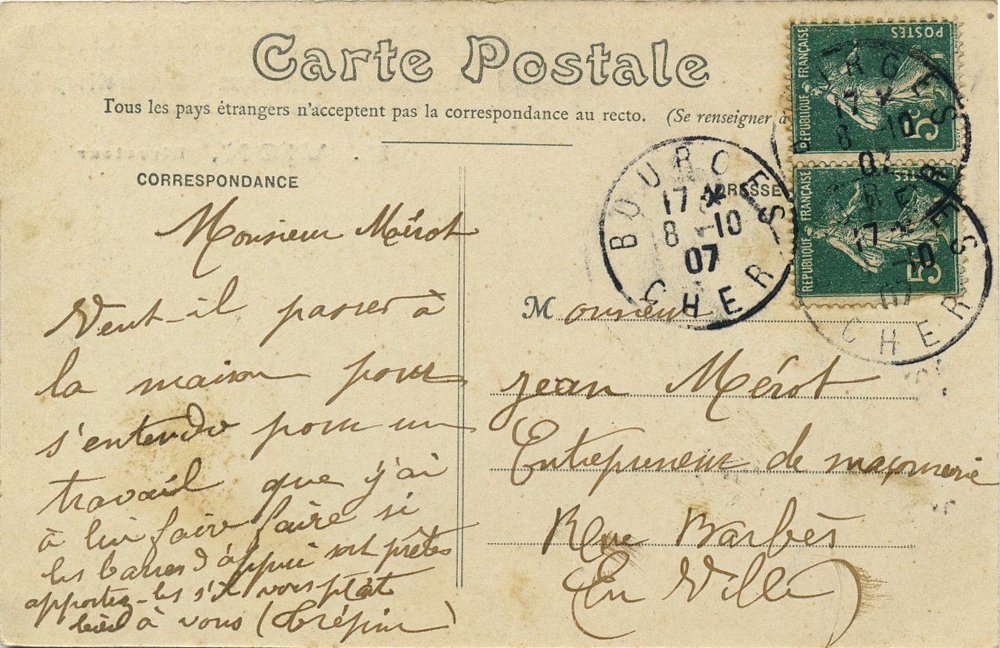 Carte Postale
Tous les pays étrangers n'acceptent pas la correspondance au recto. (Se renseigner à
CORRESPONDANCE
ADRESSE
Monsieur Mérot
Veut-il passer à
la maison pour
s'entendre pour un
travail que j'ai
à lui faire faire si
les barres d'appui sont prêtes
apportez-les s'il vous plait
bien à vous (Crépin)
Monsieur
Jean Mérot
Entrepreneur de maçonnerie
Rue Barbès
En Ville
BOURGES
17
8 - 10
07
CHER
RÉPUBLIQUE FRANÇAISE
POSTES
5c
RÉPUBLIQUE FRANÇAISE
5
17
8 10
07
CHER
17
10
07